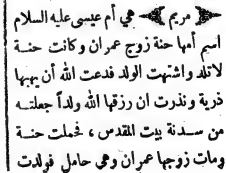 ﴿ مريم ﴾ هي أم عيسى عليه السلام
اسم أمها حنة زوج عمران وكانت حنة
لاتلد واشتهت الولد فدعت الله أن يهبها
ذرية ونذرت ان رزقها الله ولداً جعلته
من سدنة بيت المقدس ، فحملت حنة
ومات زوجها عمران وهى حامل فولدت